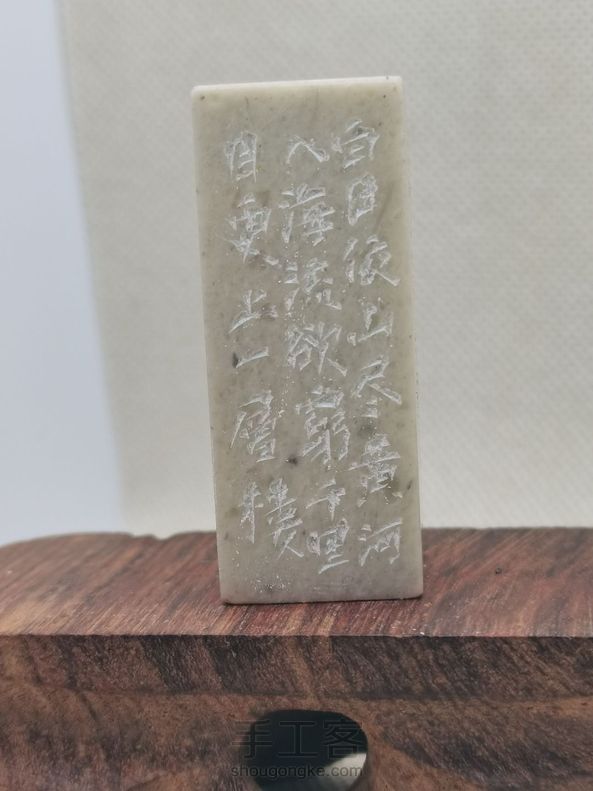 白日依山尽黄河
入海流欲窮千里
目更上一層楼
手工客
shougongke.com